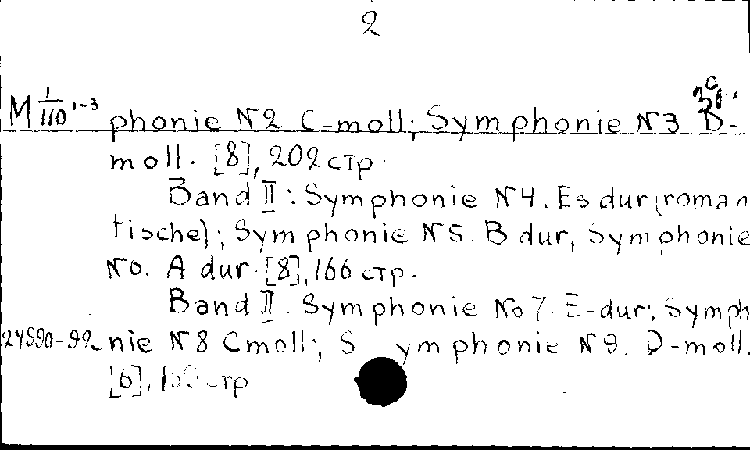 2
M 1/110 1-3 phonie №2 C-moll; Symphonie №3 D-
moll. [8], 202 стр.
Band II: Symphonie №4. Es dur (roman
tische); Symphonie №5. B dur, Symphonie
№6. A dur. [8], 166 стр.
Band II. Symphonie No 7. E-dur; Symph
24590-92 nie №8 Cmoll; Symphonie №9. D-moll.
[6], стр